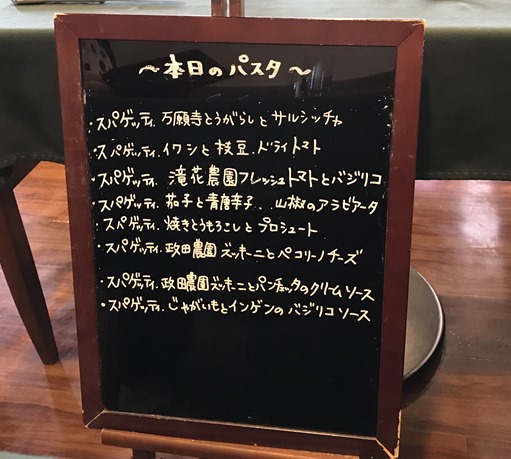 ～本日のパスタ～
・スパゲッティ. 万願寺とうがらしとサルシッチャ
・スパゲッティ. イワシと枝豆. ドライトマト
・スパゲッティ. 滝花農園フレッシュトマトとバジリコ
・スパゲッティ. 茄子と青唐辛子、山椒のアラビアータ
・スパゲッティ. 焼きとうもろこしとプロシュート
・スパゲッティ. 政田農園ズッキーニとペコリーノチーズ
・スパゲッティ. 政田農園ズッキーニとパンチェッタのクリームソース
・スパゲッティ. じゃがいもとインゲンのバジリコソース